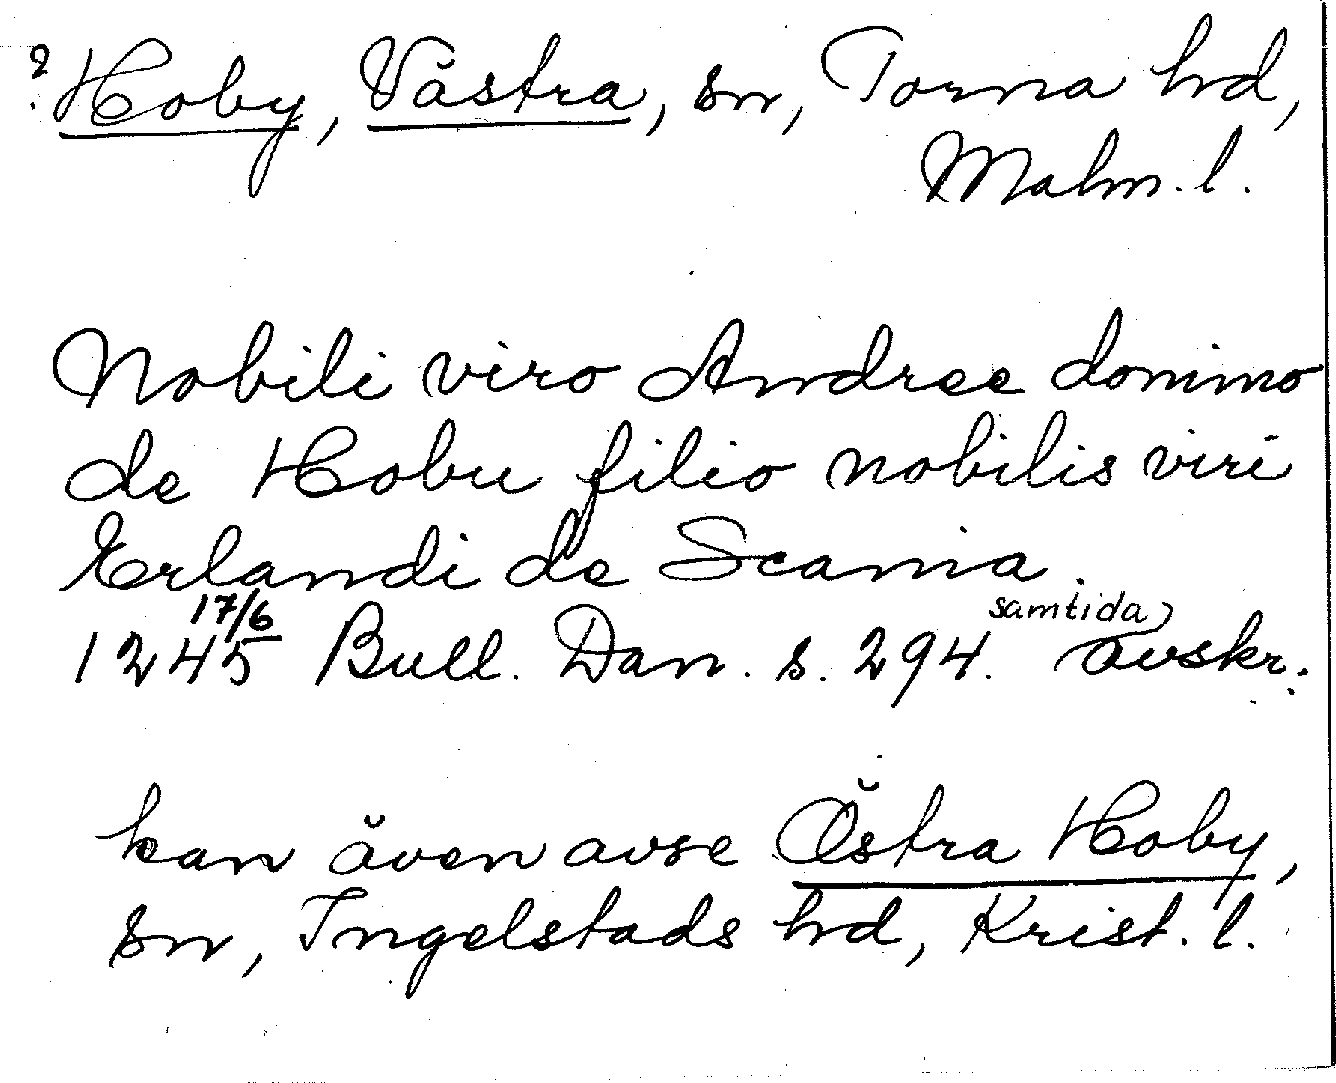 ? Hoby, Västra, sn, Torna hd,
Malm. l.
Nobili viro Andree domino
de Hobu filio nobilis viri
Erlandi de Scania.
17/6 samtida
1245 Bull. Dan. s. 294. avskr.
kan även avse Östra Hoby,
sn, Ingelstads hd, Krist. l.